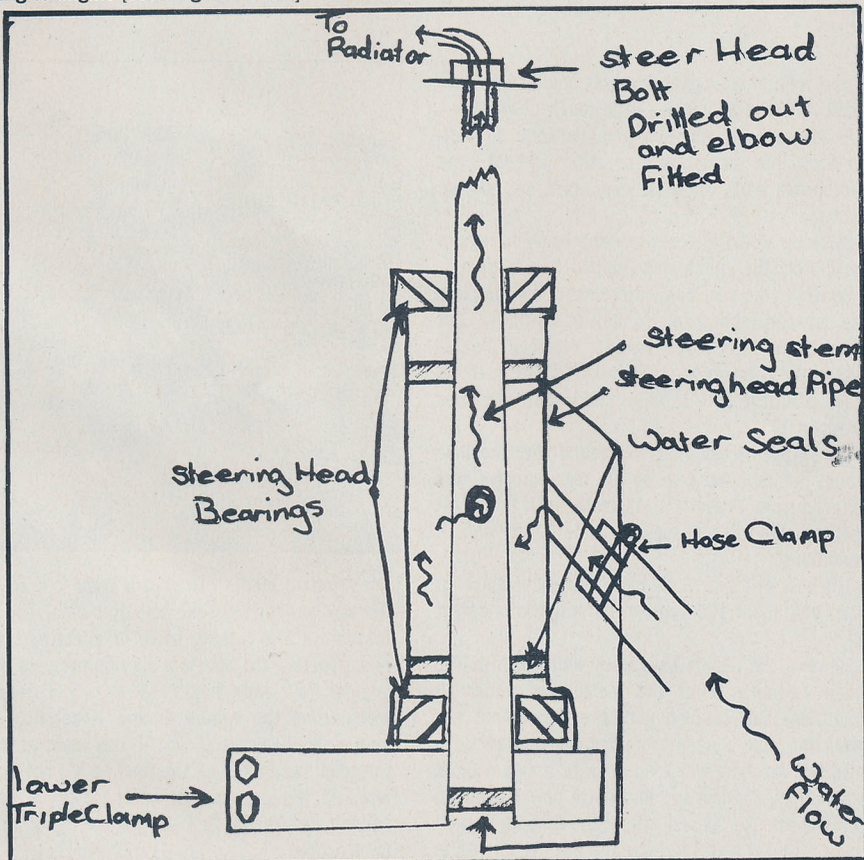 To
Radiator
steer Head
Bolt
Drilled out
and elbow
Fitted
Steering stem
steeringhead Pipe
Water Seals
Steering Head
Bearings
Hose Clamp
lower
TripleClamp
Water
Flow